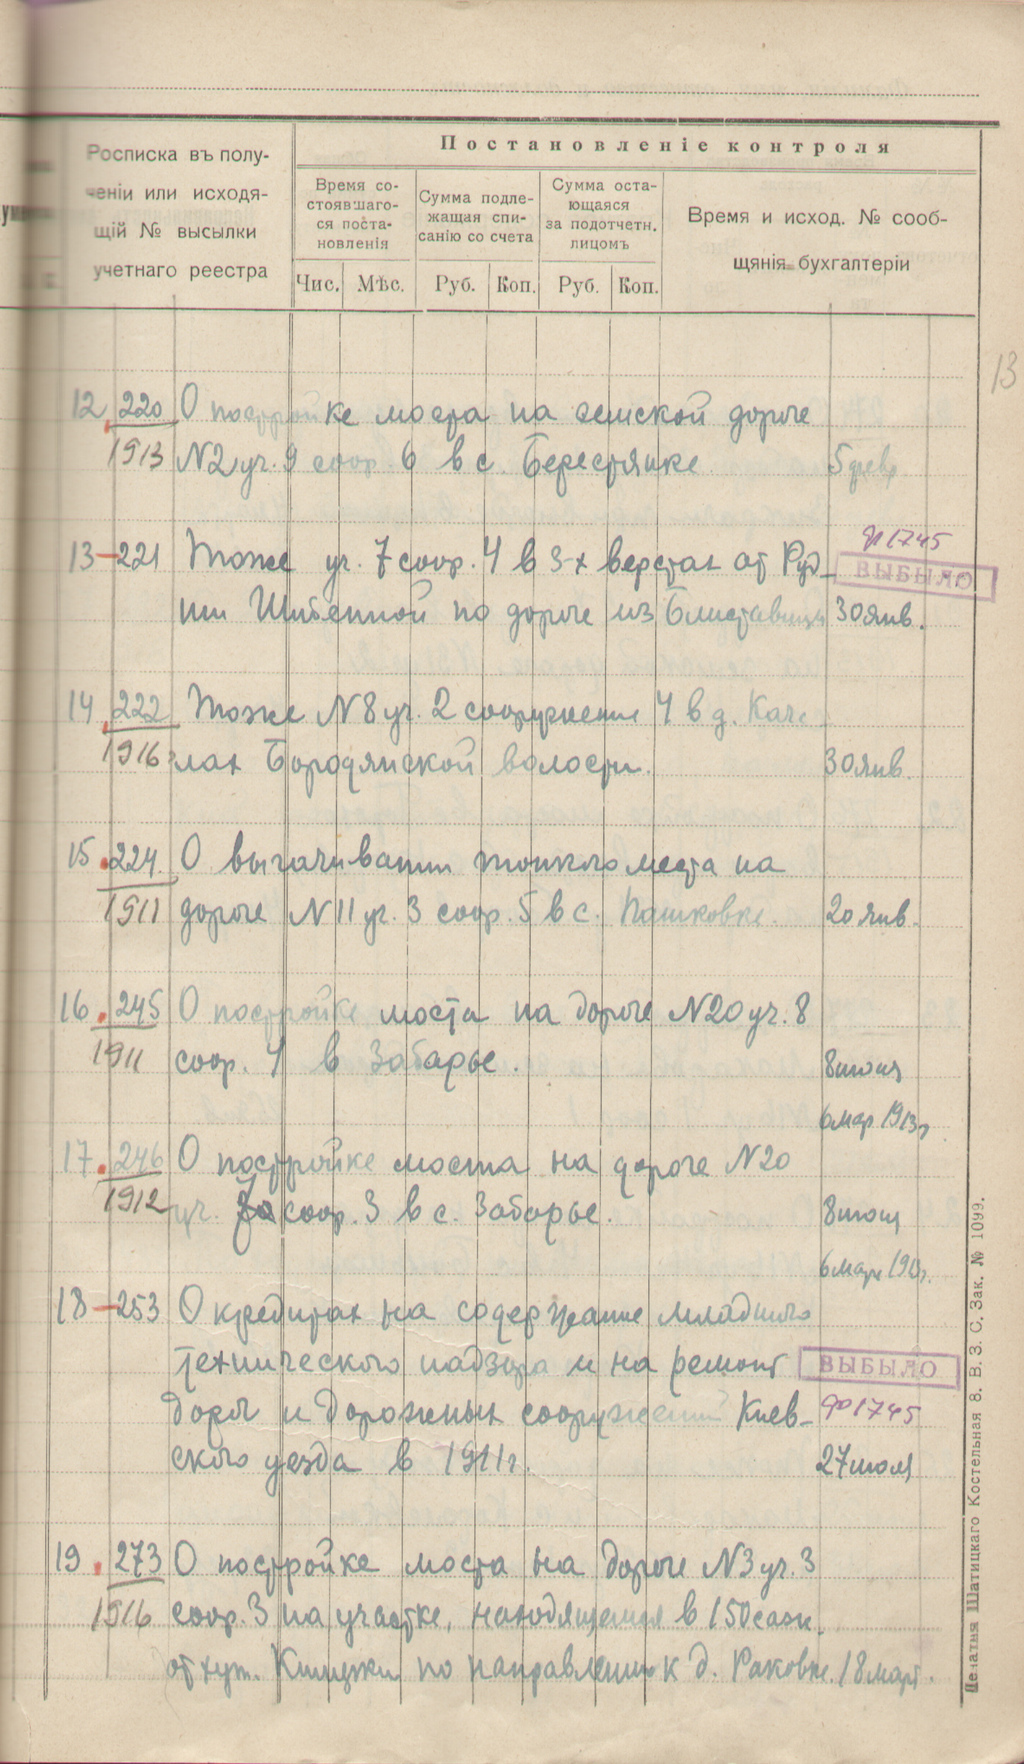 Постановленіе контроля
Росписка въ полу-
ченіи или исходя-
щій № высылки
учетнаго реестра
Время со-
стоявшаго-
ся поста-
новленія
Сумма подле-
жащая спи-
санію со счета
Сумма оста-
ющаяся
за подотчетн.
лицомъ
Время и исход. № сооб-
щянія бухгалтеріи
Чис. Мѣс. Руб. Коп. Руб. Коп.
13
12. 220 О постройке моста на земской дороге
1913 N2 уч. 9 соор. 6 в с. Берестянке 5 февр
ф 1745
13 – 221 Тоже уч. 7 соор. 4 в 3-х верстах от Руд- ВЫБЫЛО
ни Шибенной по дороге из Блиставицы 30 янв.
14. 222 Тоже N8 уч. 2 сооружение 4 в д. Каче
1916 лах Бородянской волости. 30 янв.
15. 224. О вымачивании топкго места на
1911 дороге N11 уч. 3 соор. 5 в с. Пашковке. 20 янв.
16. 245 О постройке моста на дороге N20 уч. 8
1911 соор. 1 в Забарье. 8 июня
6 мар 1913 г
17. 246 О постройке моста на дороге N20
1912 уч. соор. 3 в с. Заборье. 8 июня
6 марта 1913 г.
18 – 253 О кредитах на содержание младшего
технического надзора и на ремонт ВЫБЫЛО
дорог и дорожных сооружений Киев- ф 1745
ского уезда в 1911 г. 27 июля
19. 273 О постройке моста на дороге N3 уч. 3
1916 соор. 3 на участке, находящемся в 150 саж.
от хут. по направлению к д. Раковке. 18 март.
Печатня Шатицкаго Костельная 8. В. З. С. Зак. № 1099.